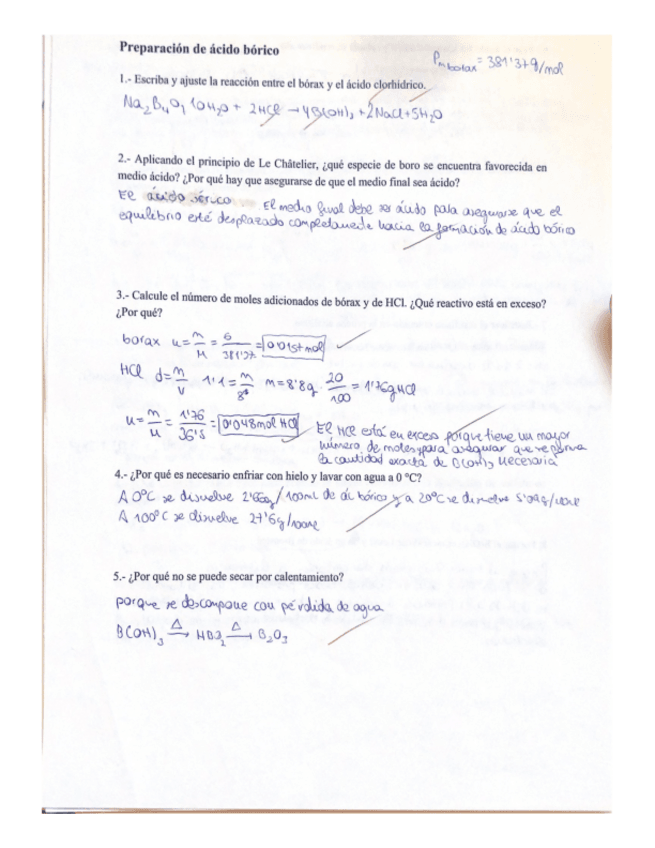 Preparación de ácido bórico
Pm borax = 381'37 g/mol
1.- Escriba y ajuste la reacción entre el bórax y el ácido clorhídrico.
Na2B4O7 10H2O + 2HCl → 4B(OH)3 + 2NaCl + 5H2O
2.- Aplicando el principio de Le Châtelier, ¿qué especie de boro se encuentra favorecida en
medio ácido? ¿Por qué hay que asegurarse de que el medio final sea ácido?
El ácido bórico El medio final debe ser ácido para asegurarse que el
equilibrio esté desplazado completamente hacia la formación de ácido bórico
3.- Calcule el número de moles adicionados de bórax y de HCl. ¿Qué reactivo está en exceso?
¿Por qué?
borax n = m/M = 6/381'37 = 0'0157 mol
HCl d = m/v 1'1 = m/8 m = 8'8g · 20/100 = 1'76g HCl
n = m/M = 1'76/36'5 = 0'048 mol HCl
El HCl está en exceso porque tiene un mayor
número de moles para asegurar que se
la cantidad exacta de B(OH)3 necesaria
4.- ¿Por qué es necesario enfriar con hielo y lavar con agua a 0 °C?
A 0°C se disuelve 2'66g/100ml de ác bórico y a 20°C se disuelve 5'04g/100ml
A 100°C se disuelve 27'6g/100ml
5.- ¿Por qué no se puede secar por calentamiento?
porque se descompone con pérdida de agua
B(OH)3 Δ→ HBO2 Δ→ B2O3